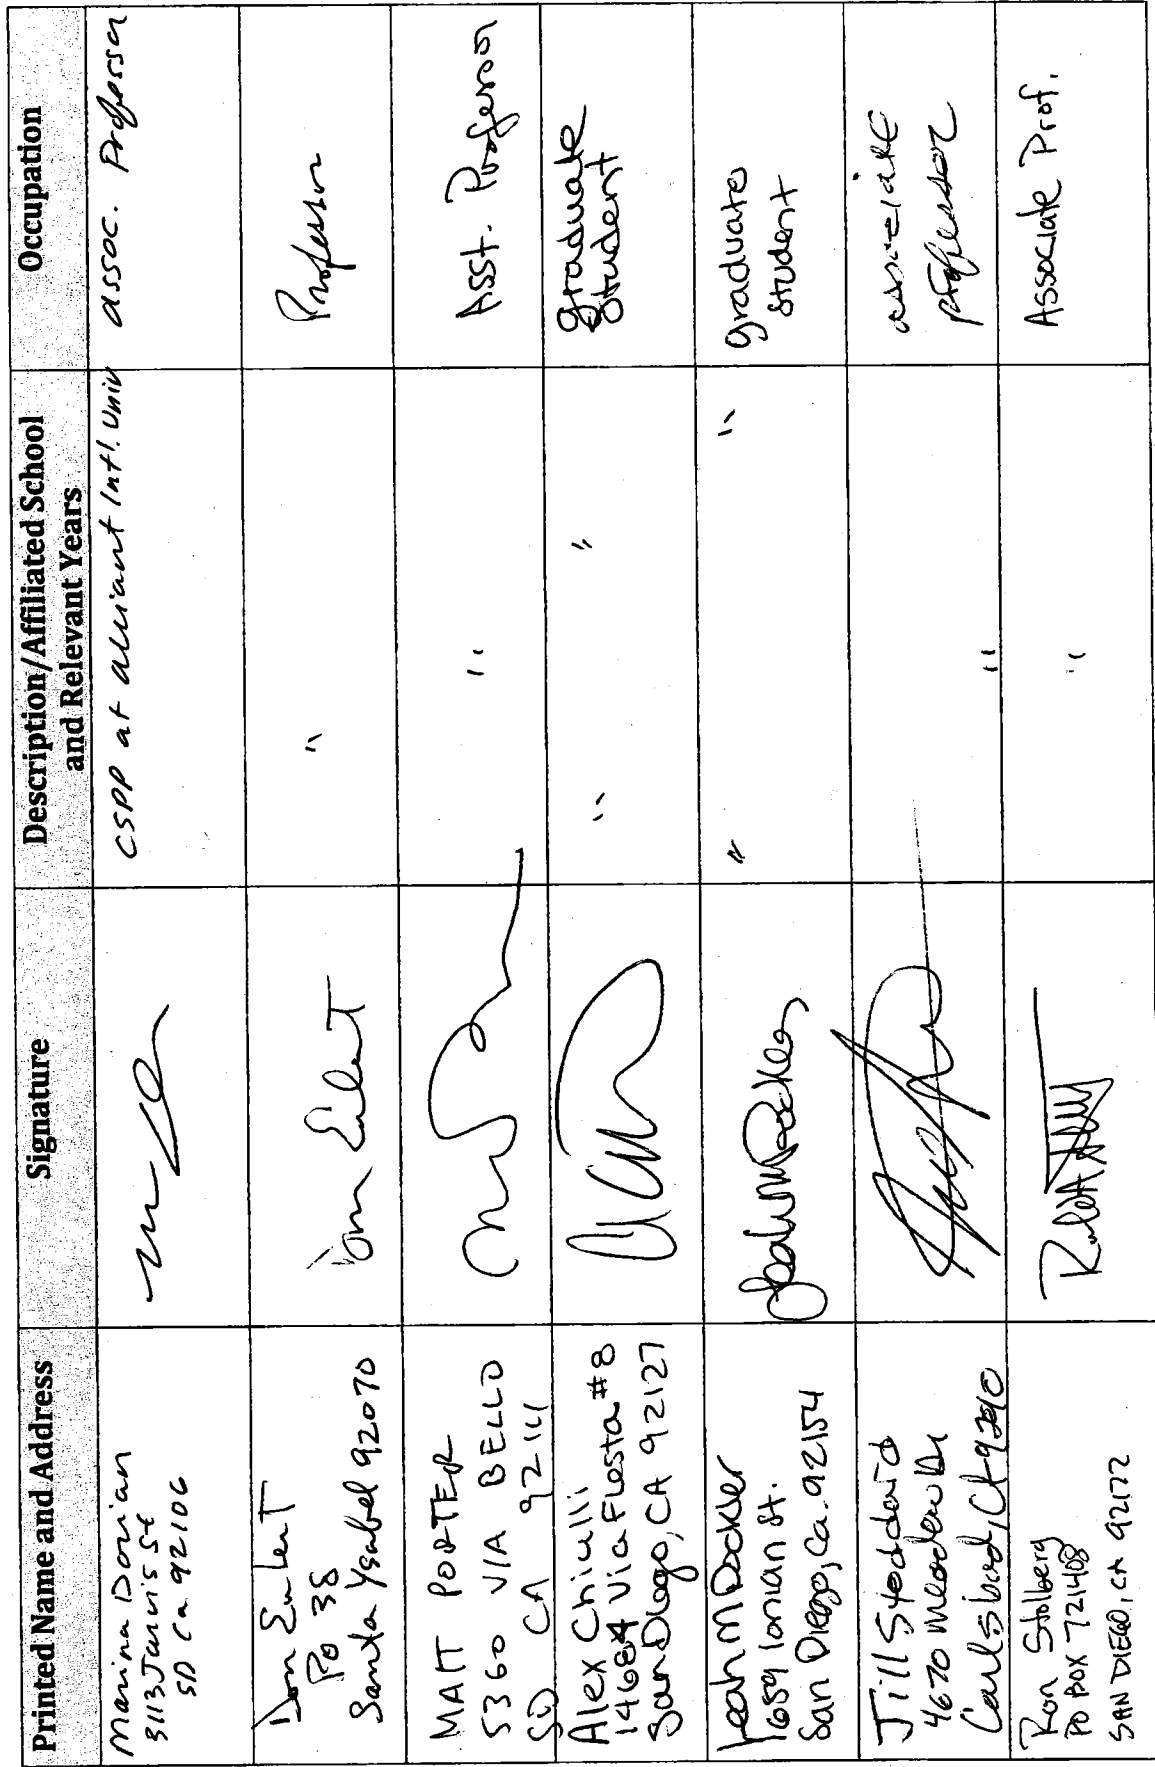 Printed Name and Address
Signature
Description/Affiliated School
and Relevant Years
Occupation
Marina Dorian
3113 Jarvis St
SD Ca 92106
CSPP at alliant Int'l. Univ
assoc. Professor
Don
PO 38
Santa Ysabel 92070
"
Professor
MATT PORTER
5360 VIA BELLO
SD CA 92111
"
Asst. Professor
Alex Chiulli
14684 Via Fiesta #8
San Diego, CA 92127
" "
graduate
student
Leah M Dockler
1659 Ionian St.
San Diego, Ca. 92154
" "
graduate
student
Jill Stoddard
4670 Meadow Dr
Carlsbad, CA
"
associate
professor
Ron Stolberg
PO BOX 721408
SAN DIEGO, CA 92172
"
Associate Prof.